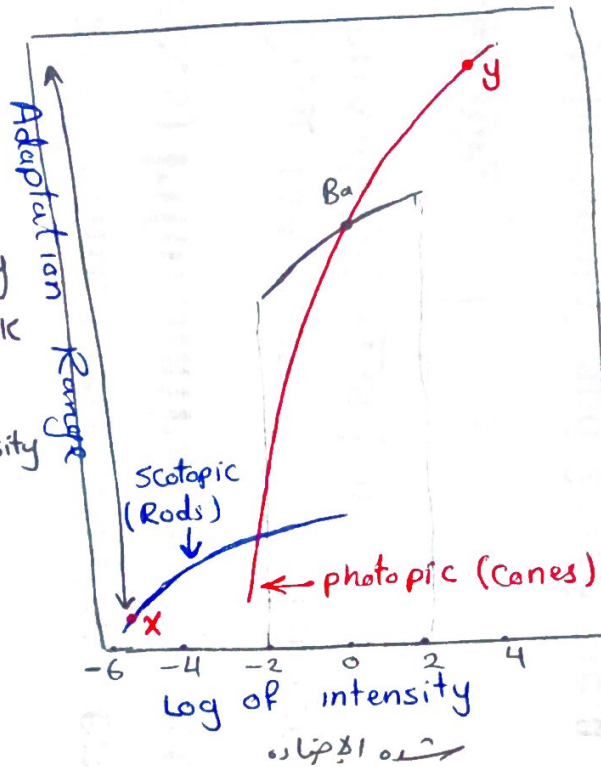 y
Adaptation Range
y
Ba
k
sity
scotopic
(Rods)
photopic (Cones)
x
-6 -4 -2 0 2 4
Log of intensity
شده الإضاءه